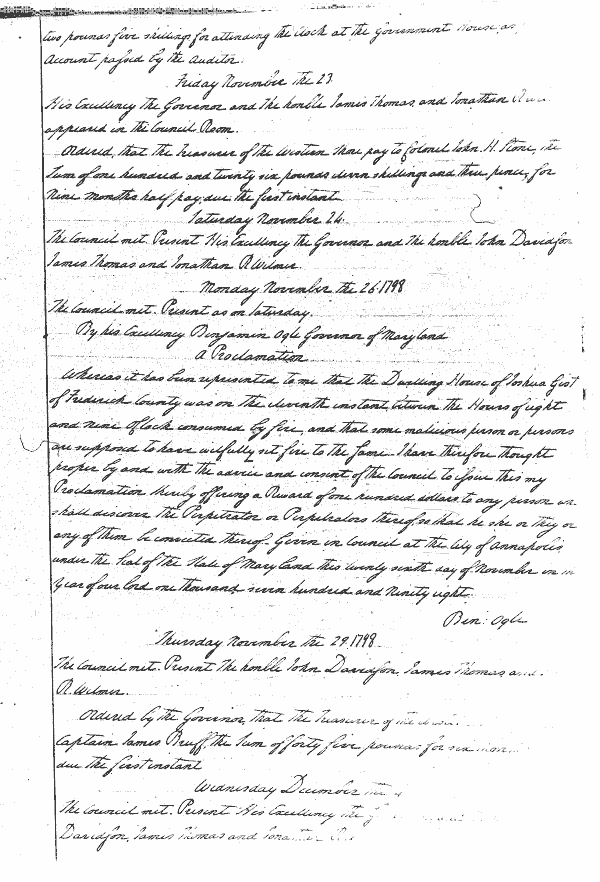 two pounds five shillings for attending the Clock at the Government House as
Account passed by the Auditor.
Friday November the 23.
His Excellency the Governor and the honble James Thomas, and Jonathan
appeared in the Council Room.
Ordered, that the Treasurer of the Western Shore pay to Colonel John. H. Stone, the
Sum of one hundred and twenty six pounds seven shillings and three pence, for
Nine months half pay, due the first instant
Saturday November 24.
The Council met. Present His Excellency the Governor and the honble John Davidson
James Thomas and Jonathan R Wilmer.
Monday November the 26. 1798
The Council met. Present as on Saturday.
By his Excellency Benjamin Ogle Governor of Maryland
A Proclamation
Whereas it has been represented to me that the Dwelling House of Joshua Gist
of Frederick County was on the eleventh instant, between the Hours of eight
and nine oClock consumed by fire, and that some malicious person or persons
are supposed to have wilfully set fire to the same. I have therefore thought
proper by and with the advice and consent of the Council to issue this my
Proclamation thereby offering a Reward of one hundred dollars to any person
shall discover the Perpetrator or Perpetrators thereof so that he she or they or
any of them be convicted thereof. Given in Council at the City of Annapolis
under the Seal of the State of Maryland this twenty sixth day of November in
Year of our Lord one thousand seven hundred and Ninety eight.
Ben: Ogle
Thursday November the 29. 1798
The Council met. Present The honble John Davidson, James Thomas and
R. Wilmer.
Ordered by the Governor, that the Treasurer of the
Captain James Bruff, the Sum of forty five pounds for six
due the first instant
Wednesday December the
The Council met. Present His Excellency the
Davidson, James Thomas and